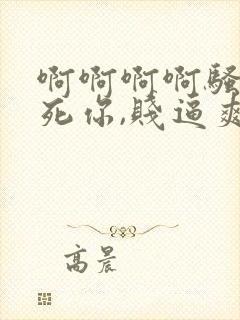 啊啊啊啊骚
死你,贱逼爽
高晨